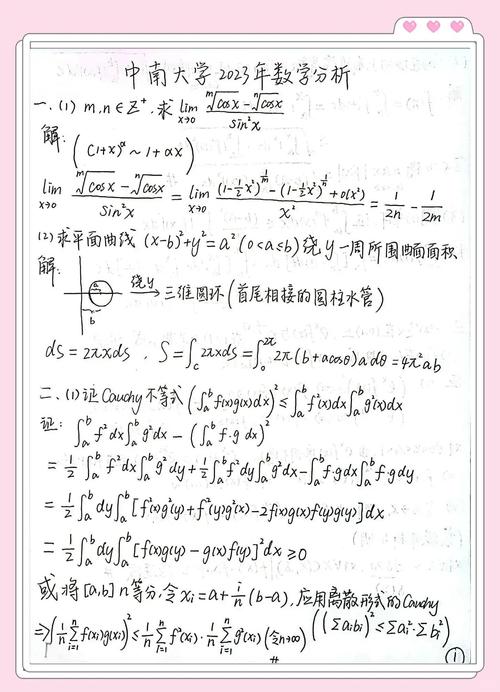 中南大学2023年数学分析
一.(1) m,n∈Z⁺,求 lim_{x→0} (ᵐ√cosx - ⁿ√cosx)/sin²x
解: ((1+x)^α ~ 1+αx)
lim_{x→0} (ᵐ√cosx - ⁿ√cosx)/sin²x = lim_{x→0} ((1-½x²)^{1/m} - (1-½x²)^{1/n} + o(x²))/x² = 1/2n - 1/2m
(2)求平面曲线 (x-b)²+y²=a² (0<a≤b) 绕y一周所围曲面面积
解: a b 绕y → 三维圆环(首尾相接的圆柱水管)
dS=2πxds , S=∫_c 2πxds=∫_0^{2π} 2π(b+acosθ)a dθ=4π²ab
二、(1)证Cauchy不等式 (∫_a^b f(x)g(x)dx)² ≤ ∫_a^b f²(x)dx∫_a^b g²(x)dx
证: ∫_a^b f²dx∫_a^b g²dx - (∫_a^b f·g dx)²
= ½∫_a^b f²dx∫_a^b g²dy + ½∫_a^b f²dy∫_a^b g²dx - ∫_a^b f·gdx∫_a^b f·gdy
= ½∫_a^b dy∫_a^b [f²(x)g²(y)+f²(y)g²(x)-2f(x)g(x)f(y)g(y)]dx
= ½∫_a^b dy∫_a^b [f(x)g(y)-g(x)f(y)]²dx ≥0
或将[a,b] n等分,令 xᵢ=a+i/n(b-a), 应用离散形式的Cauchy
⇒(1/n Σ_{i=1}^n f(xᵢ)g(xᵢ))² ≤ 1/n Σ_{i=1}^n f²(xᵢ)·1/n Σ_{i=1}^n g²(xᵢ) (令n→∞) ((Σaᵢbᵢ)² ≤ Σaᵢ²·Σbᵢ²)
#
①